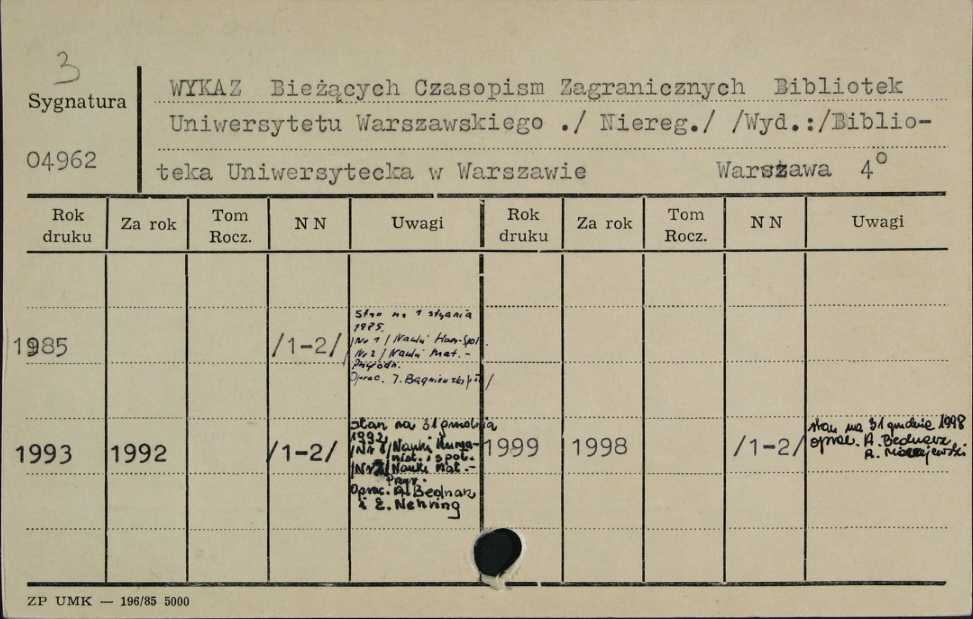 3
Sygnatura
04962
WYKAZ Bieżących Czasopism Zagranicznych Bibliotek
Uniwersytetu Warszawskiego ./ Niereg./ /Wyd.:/Biblio-
teka Uniwersytecka w Warszawie Warszawa 4°
Rok druku Za rok Tom Rocz. N N Uwagi Rok druku Za rok Tom Rocz. N N Uwagi
1985 /1-2/
Stan na 1 stycznia
1985.
/Nr 1/ Nauki Hum-Społ.
/Nr 2/ Nauki Mat.-
Przyrodn.
Oprac. J.
1993 1992 /1-2/
stan na 31 grudnia
1992.
/Nr 1/ Nauki Huma-
nist. i społ.
/Nr 2/ Nauki Mat.-
Przyr.
Oprac. A. Bednarz
i E. Nehring
1999 1998 /1-2/
stan na 31 grudnia 1998
oprac. A. Bednarz
R. Maciejewski
ZP UMK — 196/85 5000